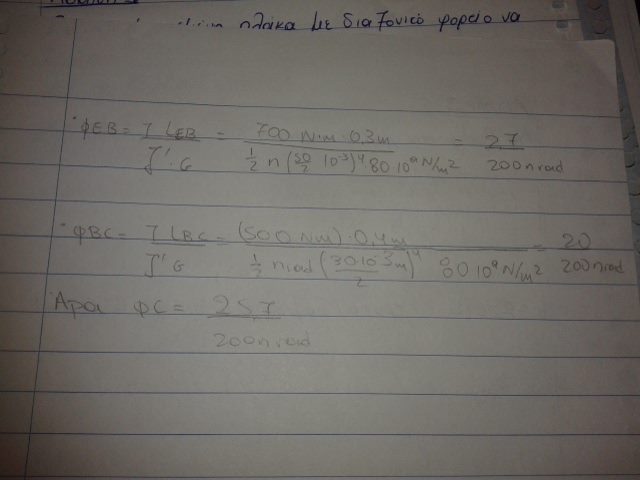 πλάκα με διαγονικό φορείο να
φEB = T LEB / J'·G = 700 N·m·0,3m / 1/2 π (50/2 10^-3)^4 80 10^9 N/m^2 = 2,7 / 200π rad
φBC = T LBC / J'·G = (500 Nm)·0,4m / 1/2 π rad (30·10^-3m / 2)^4 80 10^9 N/m^2 = 20 / 200π rad
Αρα φC = 25,7 / 200π rad